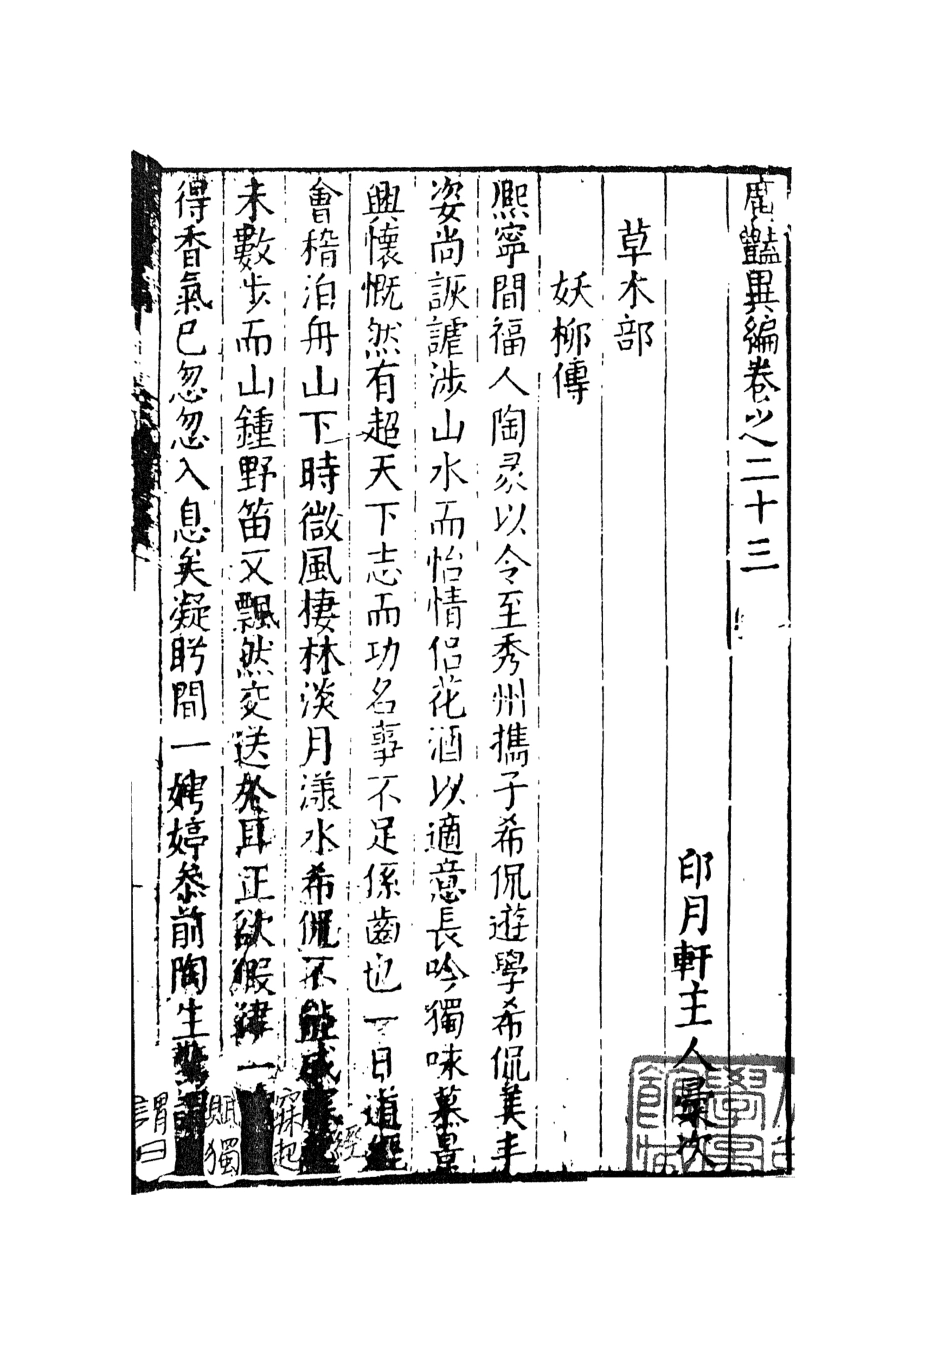 廣豔異編卷之二十三
印月軒主人彙次
草木部
妖柳傳
熈寧間福人陶彖以令至秀州㩦子希侃遊學希侃美丰
姿尚詼謔涉山水而怡情侣花酒以適意長吟獨咏慕景
興懷慨然有超天下志而功名事不足係齒也一日道經
經
會稽泊舟山下時微風棲林淡月漾水希侃不能成
寐起
未數步而山鍾野笛又飄然交送於耳正欲假律一
賦獨
得香氣已忽忽入息矣凝眸間一娉婷叅前陶生驚謂
謂曰